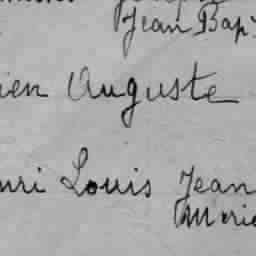 Jean Bap
ien Auguste
nri Louis Jean
Marie